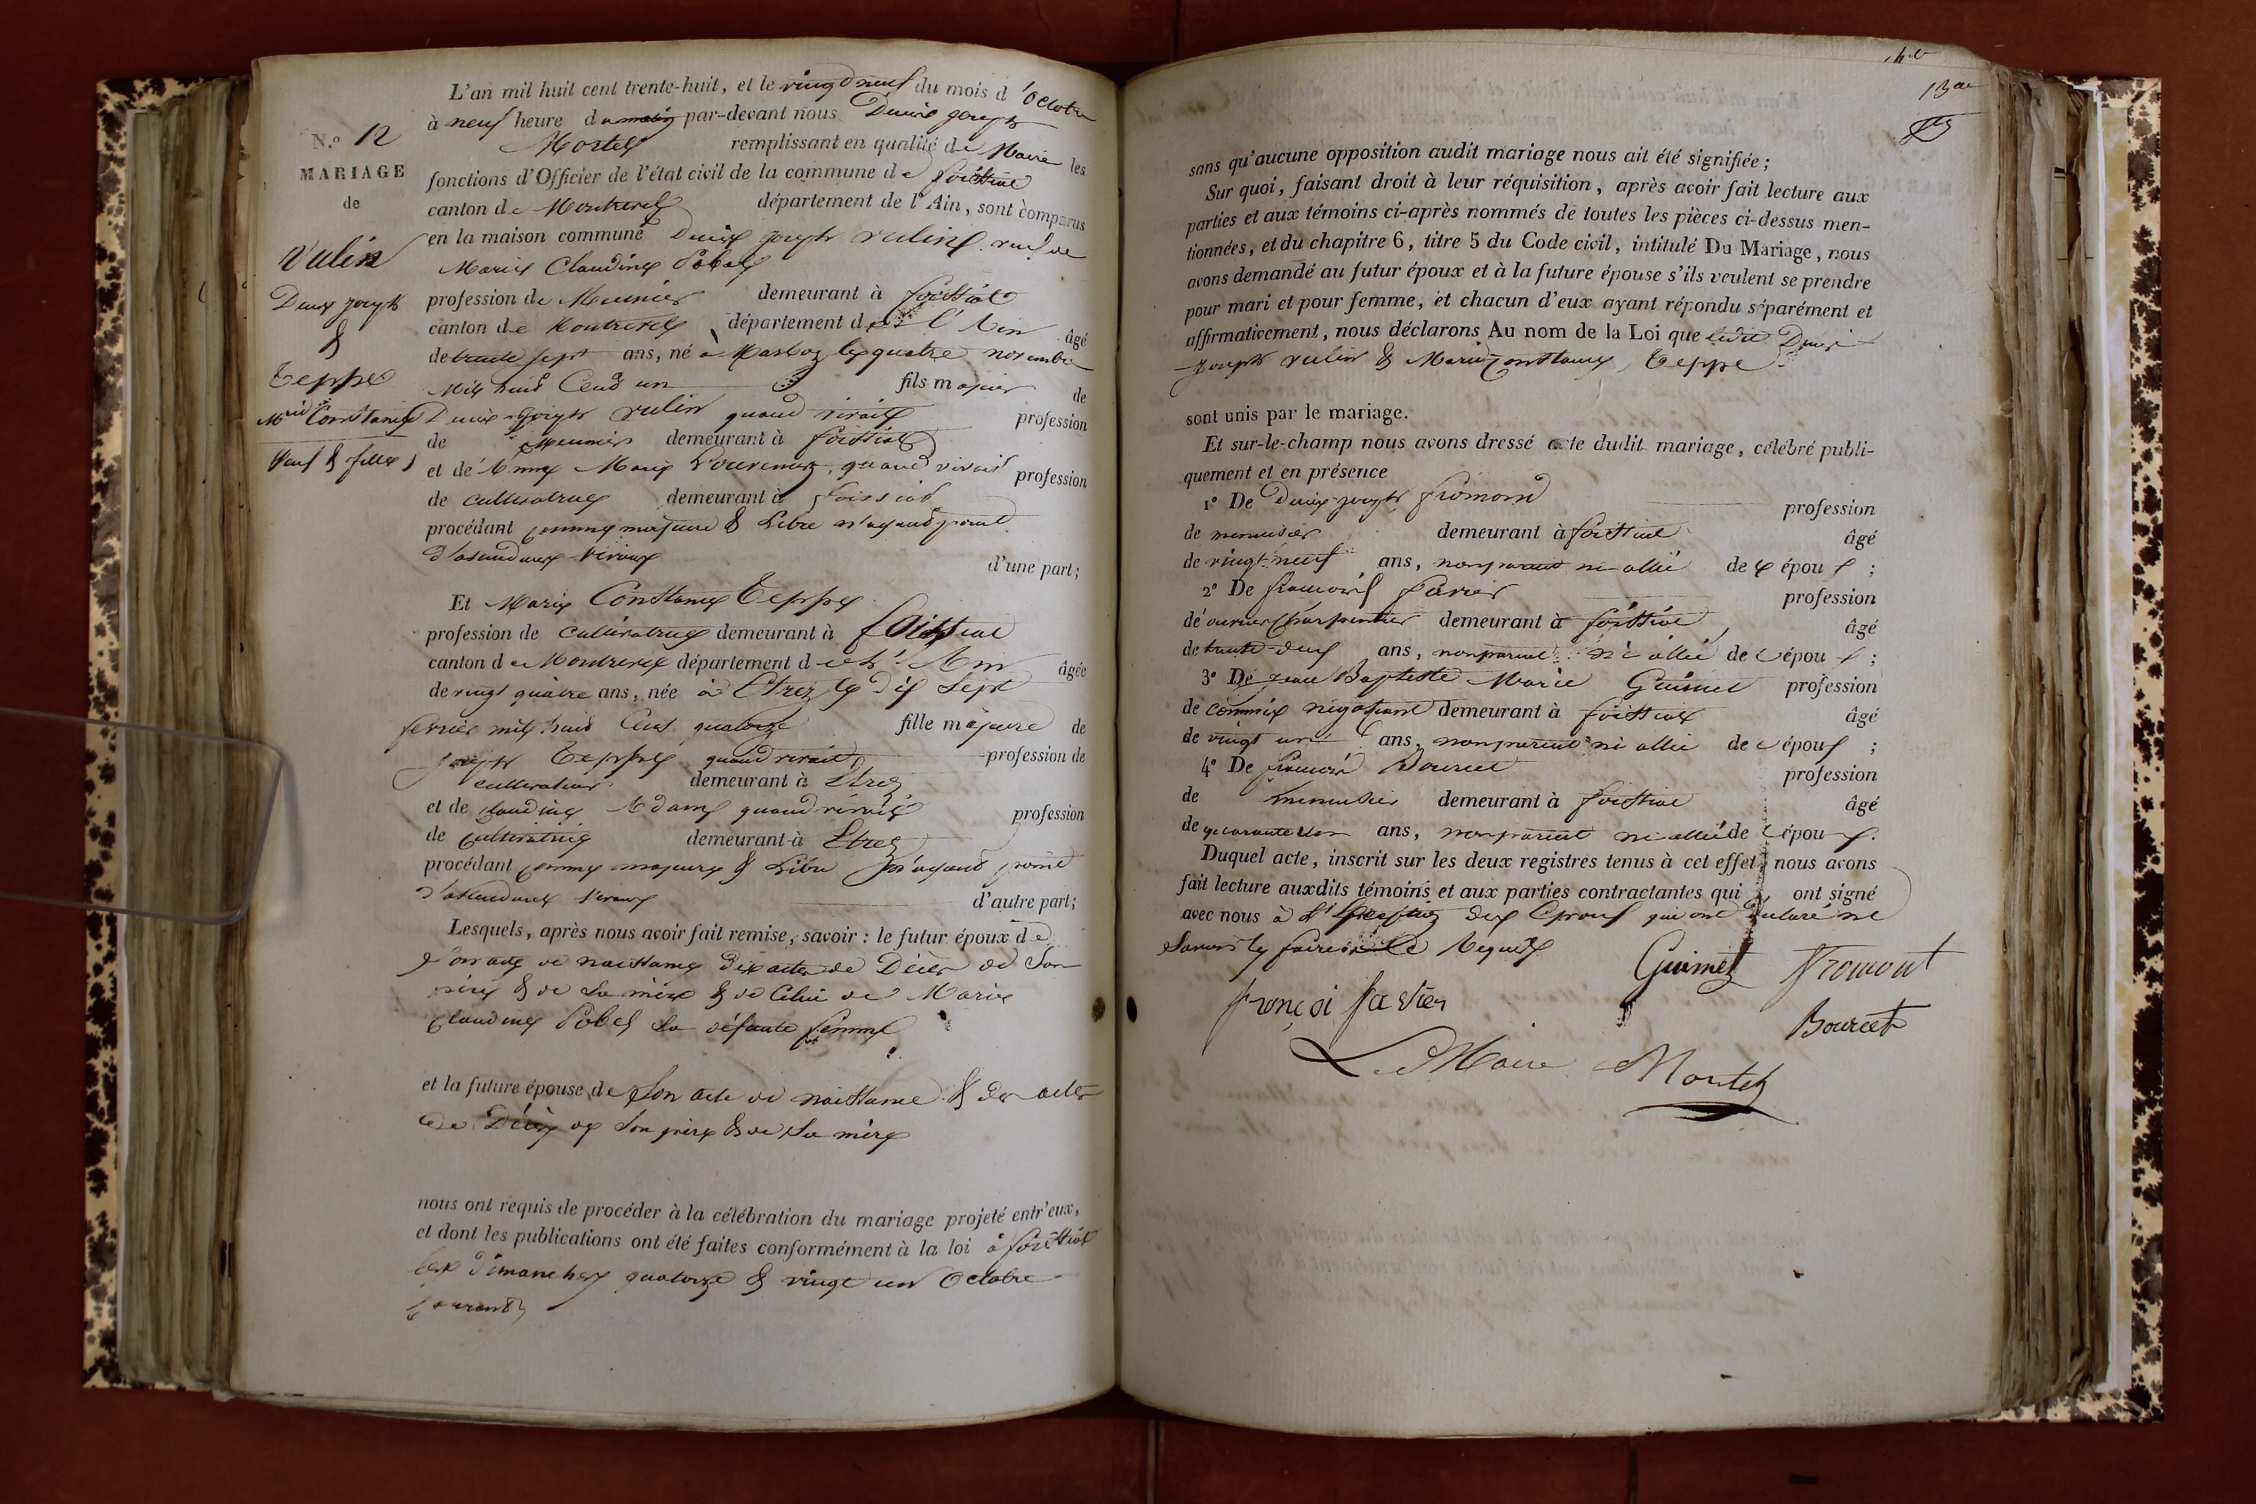 L'an mil huit cent trente-huit, et le vingt neuf du mois d'Octobre
à neuf heure du matin par-devant nous Denis joseph
N.º 12
Mortel remplissant en qualité de Maire les
MARIAGE
fonctions d'Officier de l'état civil de la commune de foissiat
de
canton de Montrevel département de l'Ain, sont comparus
en la maison commune Denis joseph vulin veuf de
Vulin
Marie Claudine Pobel
Denis joseph
profession de Meunier demeurant à foissiat
&
canton de Montrevel département de l'Ain âgé
de trente sept ans, né à Marboz le quatre novembre
Teppe
mil huit Cent un fils majeur de
Mie Constance
Denis joseph vulin quand vivait profession
de Meunier demeurant à foissiat
Veuf & fille
et de Anne Marie quand vivait profession
de cultivatrice demeurant à foissiat
procédant comme majeur & Libre n'ayant point
d'ascendant vivant d'une part;
Et Marie Constance Teppe
profession de cultivatrice demeurant à foissiat
canton de Montrevel département de l'Ain âgée
de vingt quatre ans, née à Etrez le dix sept
fevrier mil huit Cent quatorze fille majeure de
joseph Teppe quand vivait profession de
cultivateur demeurant à Etrez
et de Claudine Adam quand vivait profession
de cultivatrice demeurant à Etrez
procédant comme majeure & Libre n'ayant point
d'ascendant vivant d'autre part;
Lesquels, après nous avoir fait remise, savoir : le futur époux de
son acte de naissance des actes de Décès de Son
père & de sa mère & de Celui de Marie
Claudine Pobel sa défunte femme
et la future épouse de Son acte de naissance & des actes
de Décès de son père & de sa mère
nous ont requis de procéder à la célébration du mariage projeté entr'eux,
et dont les publications ont été faites conformément à la loi à foissiat
les dimanches quatorze & vingt un Octobre
courant
sans qu'aucune opposition audit mariage nous ait été signifiée;
Sur quoi, faisant droit à leur réquisition, après avoir fait lecture aux
parties et aux témoins ci-après nommés de toutes les pièces ci-dessus men-
tionnées, et du chapitre 6, titre 5 du Code civil, intitulé Du Mariage, nous
avons demandé au futur époux et à la future épouse s'ils veulent se prendre
pour mari et pour femme, et chacun d'eux ayant répondu séparément et
affirmativement, nous déclarons Au nom de la Loi que ledit Denis
joseph vulin & Marie Constance Teppe
sont unis par le mariage.
Et sur-le-champ nous avons dressé acte dudit mariage, célébré publi-
quement et en présence
1º De Denis joseph fromont profession
de menuisier demeurant à foissiat âgé
de vingt-neuf ans, non parent ni allié de époux;
2º De françois favier profession
de ouvrier Charpentier demeurant à foissiat âgé
de trente deux ans, non parent ni allié de époux;
3º De jean Baptiste Marie Guimet profession
de commis négotiant demeurant à foissiat âgé
de vingt un ans, non parent ni allié de époux;
4º De françois Bourcet profession
de menuisier demeurant à foissiat âgé
de quarante ans, non parent ni allié de époux.
Duquel acte, inscrit sur les deux registres tenus à cet effet, nous avons
fait lecture auxdits témoins et aux parties contractantes qui ont signé
avec nous à l'exception des Epoux qui ont déclaré ne
Savoir le faire de ce requis
Guimet Fromont
françoi favier
Bourcet
Le Maire Mortel